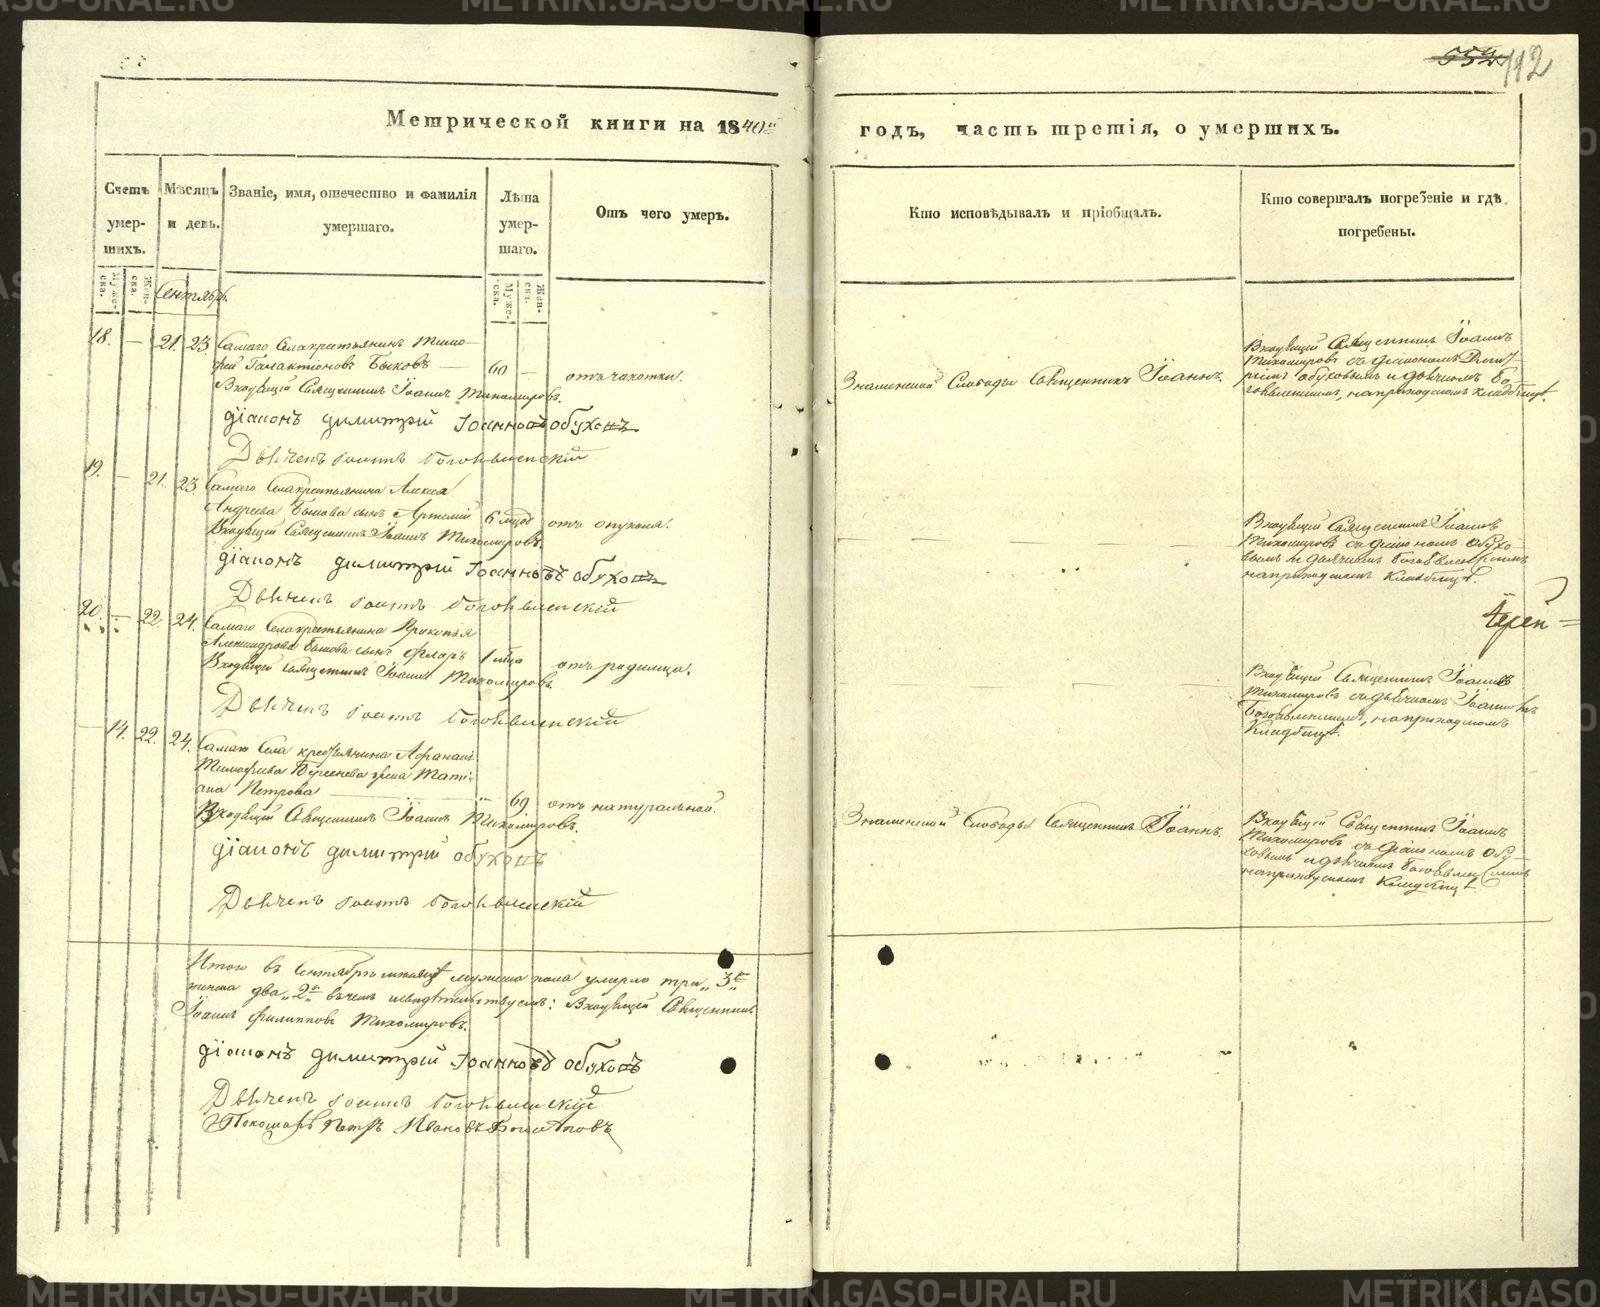 552 112
Метрической книги на 1840й
годъ, часть третія, о умершихъ.
Счетъ умер-шихъ.
Мѣсяцъ и день.
Званіе, имя, отечество и фамилія умершаго.
Лѣта умер-шаго.
Отъ чего умеръ.
Кто исповѣдывалъ и пріобщалъ.
Кто совершалъ погребеніе и гдѣ погребены.
Муже-ска.
Жен-ска.
Сентябрь.
Муже-ска.
Жен-ска.
18. — 21. 23
Самаго Села крестьянинъ Тимо-
фей Галактіоновъ Быковъ — 60 — отъ чахотки.
Входящій Священникъ Іоаннъ Тихомировъ.
Діаконъ Димитрій Іоанновъ Обуховъ
Дьячекъ Іоаннъ Богоявленскій
Знаменской Слободы Священникъ Іоаннъ.
Входящій Священникъ Іоаннъ
Тихомировъ съ діакономъ Димит-
ріемъ Обуховымъ и дьячкомъ Бо-
гоявленскимъ, на приходскомъ кладбищѣ.
19. — 21. 23
Самаго Села крестьянина Алексѣя
Андреева сынъ Артемій 6 мцовъ отъ опухоли.
Входящій Священникъ Іоаннъ Тихомировъ.
Діаконъ Димитрій Іоанновъ Обуховъ
Дьячекъ Іоаннъ Богоявленскій
Входящій Священникъ Іоаннъ
Тихомировъ съ діакономъ Обухо-
вымъ и дьячкомъ Богоявленскимъ
на приходскомъ кладбищѣ.
20. — 22. 24.
Самаго Села крестьянина Прокопья
Александрова сынъ Флоръ 1 мца отъ родимца.
Входящій Священникъ Іоаннъ Тихомировъ.
Дьячекъ Іоаннъ Богоявленскій
Входящій Священникъ Іоаннъ
Тихомировъ съ дьячкомъ Іоанномъ
Богоявленскимъ, на приходскомъ
кладбищѣ.
— 14. 22. 24.
Самаго Села крестьянина Афанасія
Тимофеева жена Тати-
ана Петрова — 69 отъ натуральной.
Входящій Священникъ Іоаннъ Тихомировъ.
Діаконъ Димитрій Обуховъ
Дьячекъ Іоаннъ Богоявленскій
Знаменской Слободы Священникъ Іоаннъ.
Входящій Священникъ Іоаннъ
Тихомировъ съ діакономъ Обу-
ховымъ и дьячкомъ Богоявленскимъ
на приходскомъ кладбищѣ.
Итого въ Сентябрѣ мѣсяцѣ мужеска пола умерло три „3"
женска два „2" въ чемъ и свидѣтельствуемъ: Входящій Священникъ
Іоаннъ Филипповъ Тихомировъ.
Діаконъ Димитрій Іоанновъ Обуховъ
Дьячекъ Іоаннъ Богоявленскій
Пономарь Петръ Ивановъ
METRIKI.GASO-URAL.RU